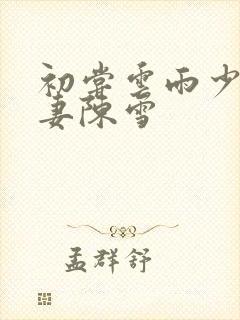 初尝云雨少
妻陈雪
孟群舒